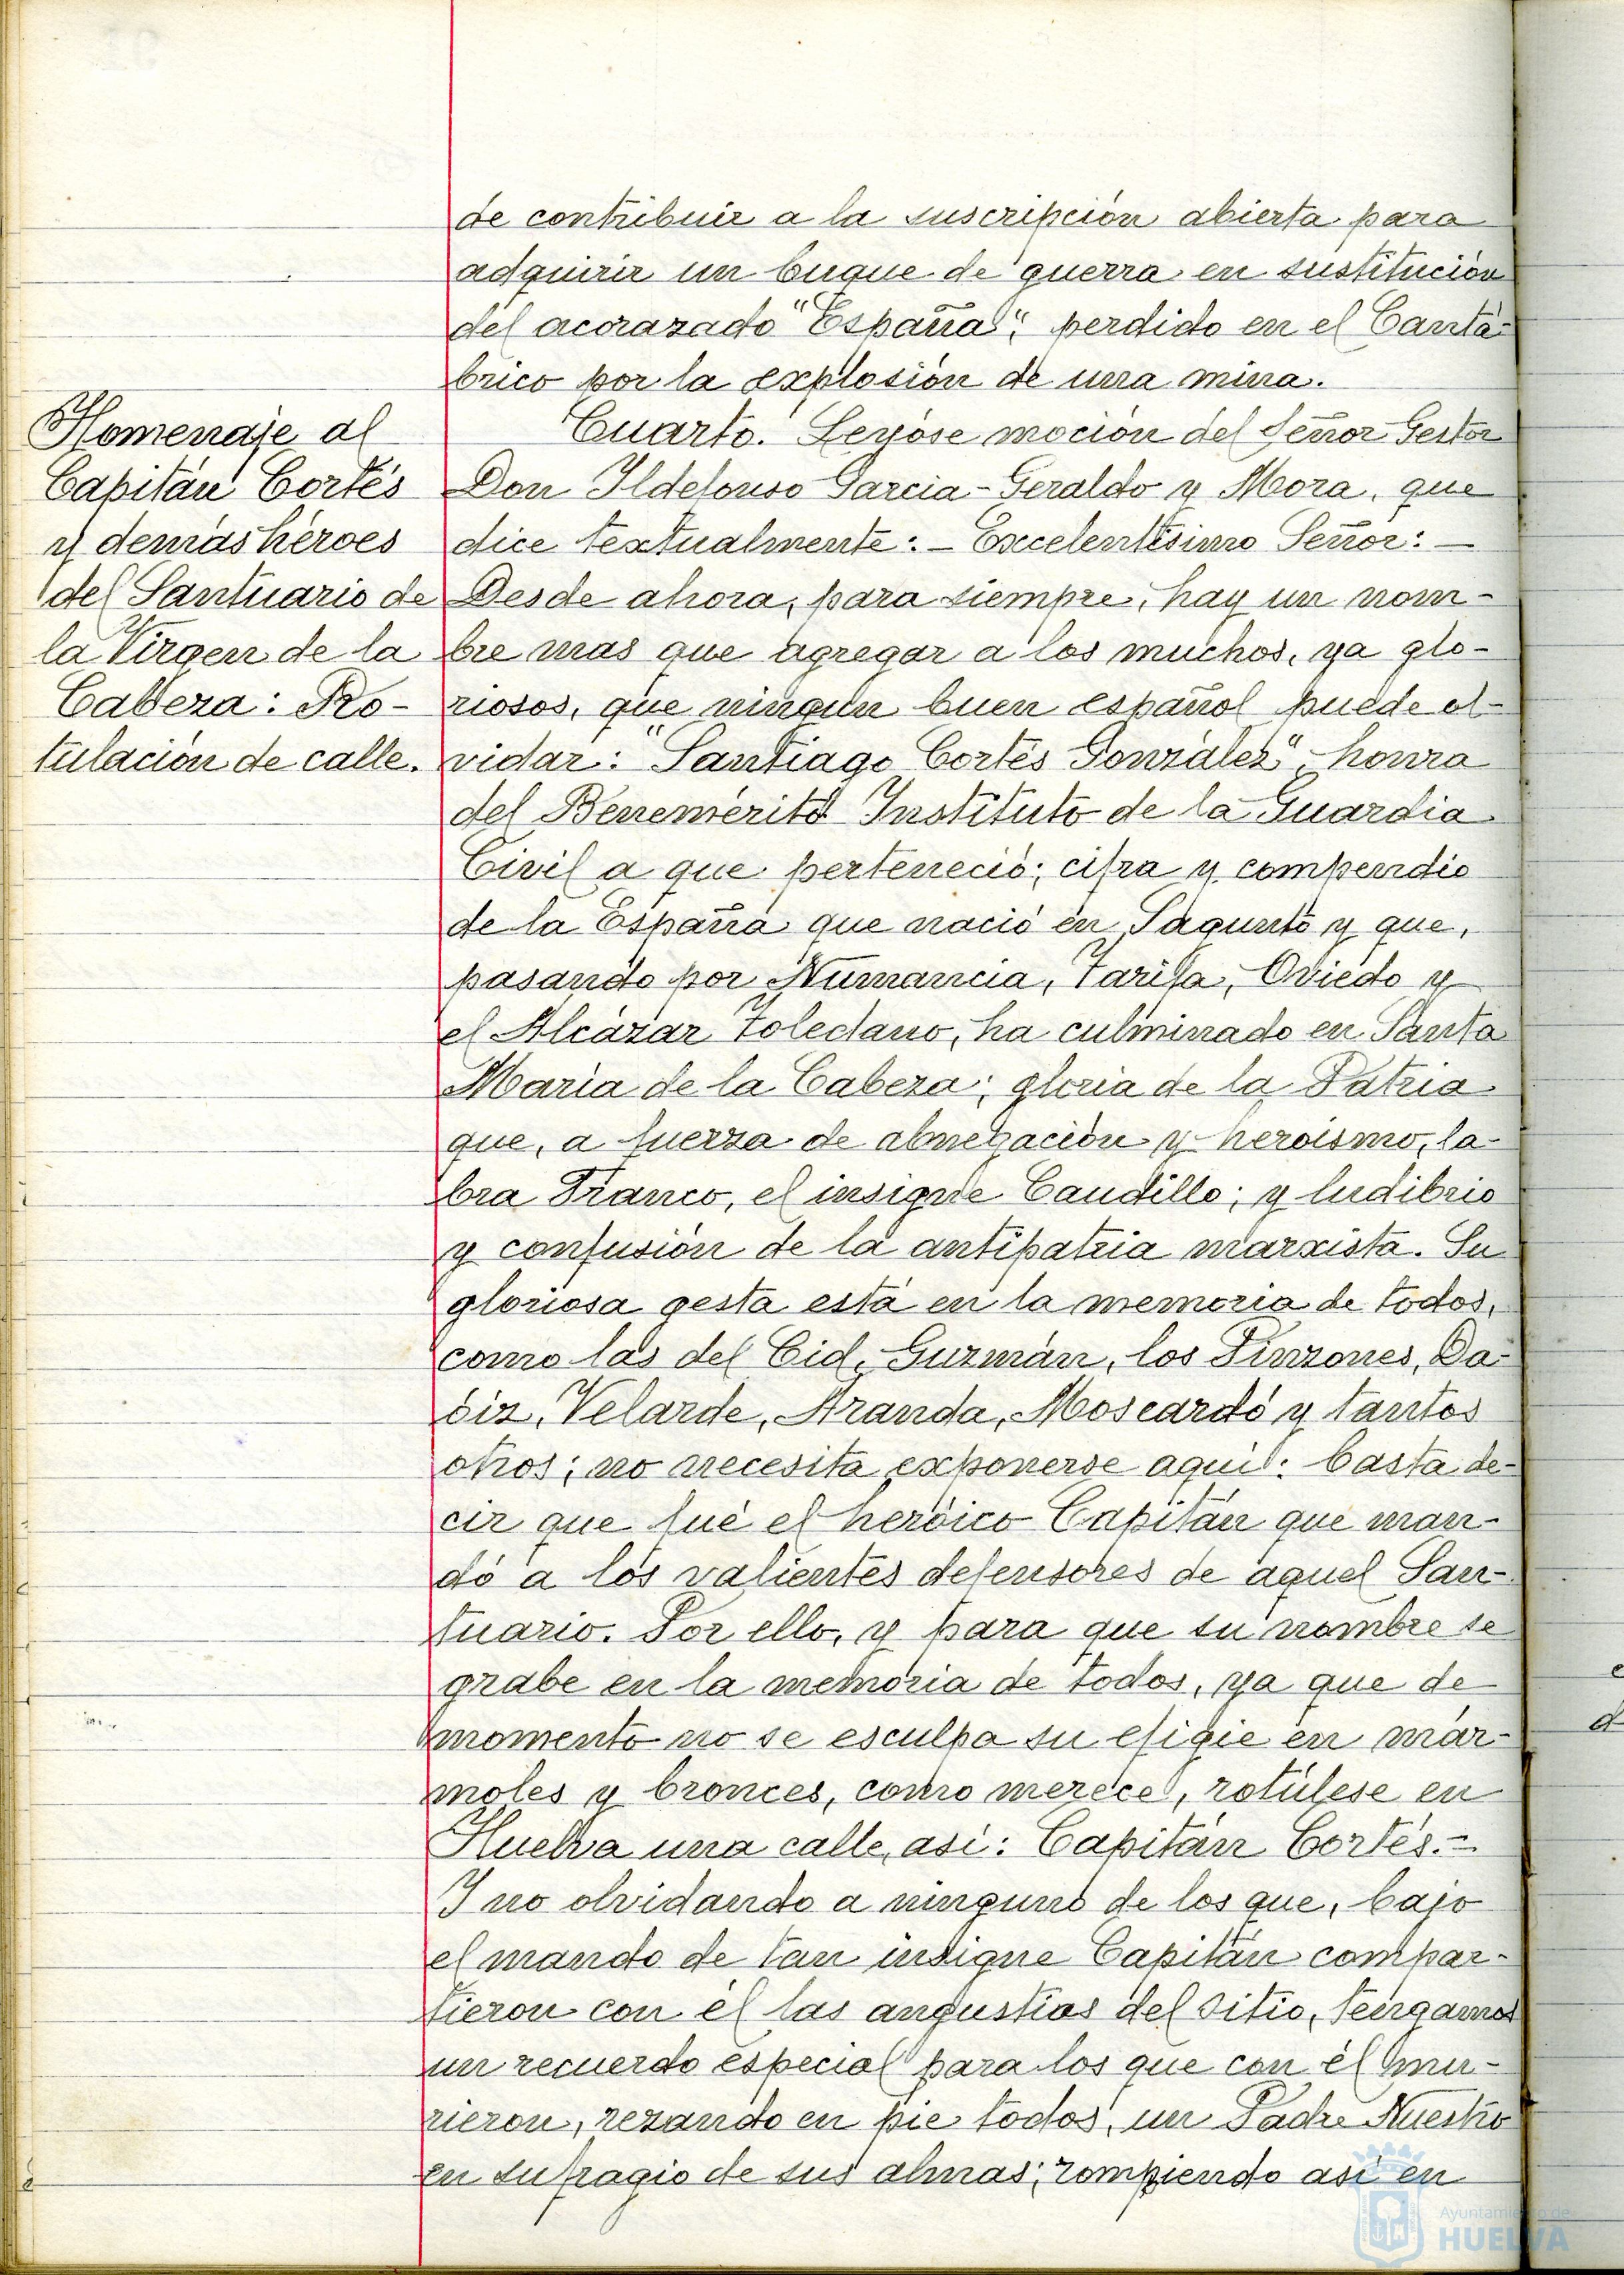 de contribuir a la suscripción abierta para
adquirir un buque de guerra en sustitución
del acorazado "España", perdido en el Cantá-
brico por la explosión de una mina.
Homenaje al
Capitán Cortés
y demás héroes
del Santuario de
la Virgen de la
Cabeza: Ro-
tulación de calle.
Cuarto. Leyóse moción del Señor Gestor
Don Ildefonso Garcia-Geraldo y Mora, que
dice textualmente: - Excelentísimo Señor: -
Desde ahora, para siempre, hay un nom-
bre mas que agregar a los muchos, ya glo-
riosos, que ningún buen español puede ol-
vidar: "Santiago Cortés González", honra
del Benemérito Instituto de la Guardia
Civil a que perteneció; cifra y compendio
de la España que nació en Sagunto y que,
pasando por Numancia, Tarifa, Oviedo y
el Alcázar Toledano, ha culminado en Santa
Maria de la Cabeza; gloria de la Patria
que, a fuerza de abnegación y heroismo, la-
bra Franco, el insigne Caudillo; y ludibrio
y confusión de la antipatria marxista. Su
gloriosa gesta está en la memoria de todos,
como las del Cid, Guzmán, los Pinzones, Da-
oiz, Velarde, Aranda, Moscardó y tantos
otros; no necesita exponerse aquí: basta de-
cir que fué el heróico Capitán que man-
dó a los valientes defensores de aquel San-
tuario. Por ello, y para que su nombre se
grabe en la memoria de todos, ya que de
momento no se esculpa su efigie en már-
moles y bronces, como merece, rotúlese en
Huelva una calle, así: Capitán Cortés. -
Y no olvidando a ninguno de los que, bajo
el mando de tan insigne Capitán compar-
tieron con él las angustias del sitio, tengamos
un recuerdo especial para los que con él mu-
rieron, rezando en pie todos, un Padre Nuestro
en sufragio de sus almas; rompiendo así en
Ayuntamiento de
HUELVA